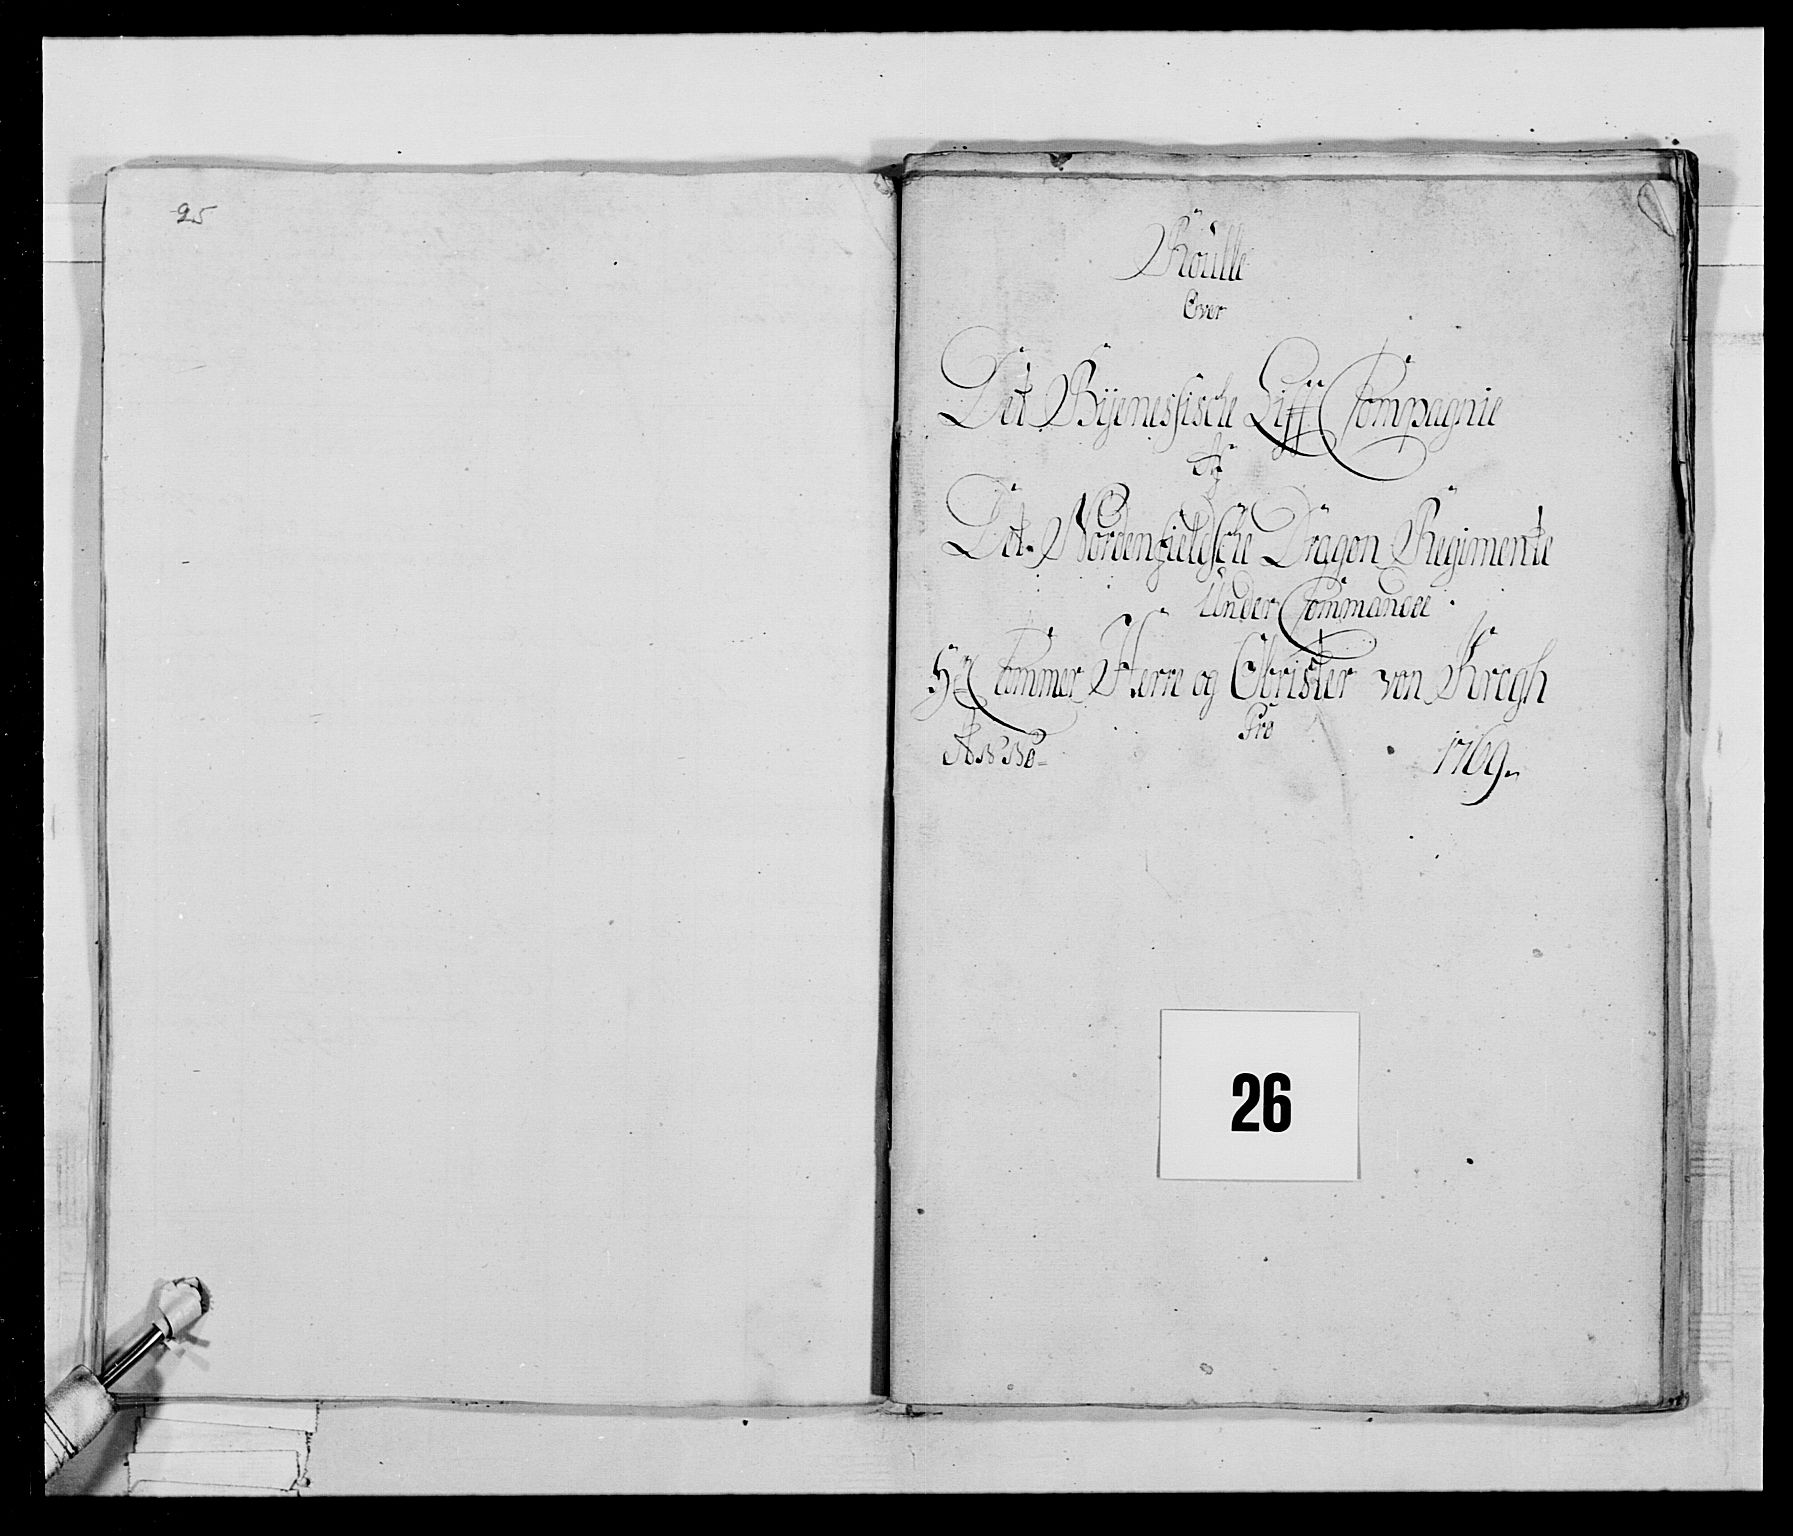 25
Roulle
Over
Det Byenessische Liff Compagnie
Af
Det Nordenfieldsche Dragon Regimente
Under Commandee
Hr Cammer Herre og Obrister von Krogh
Pro
Anno 1769.
26